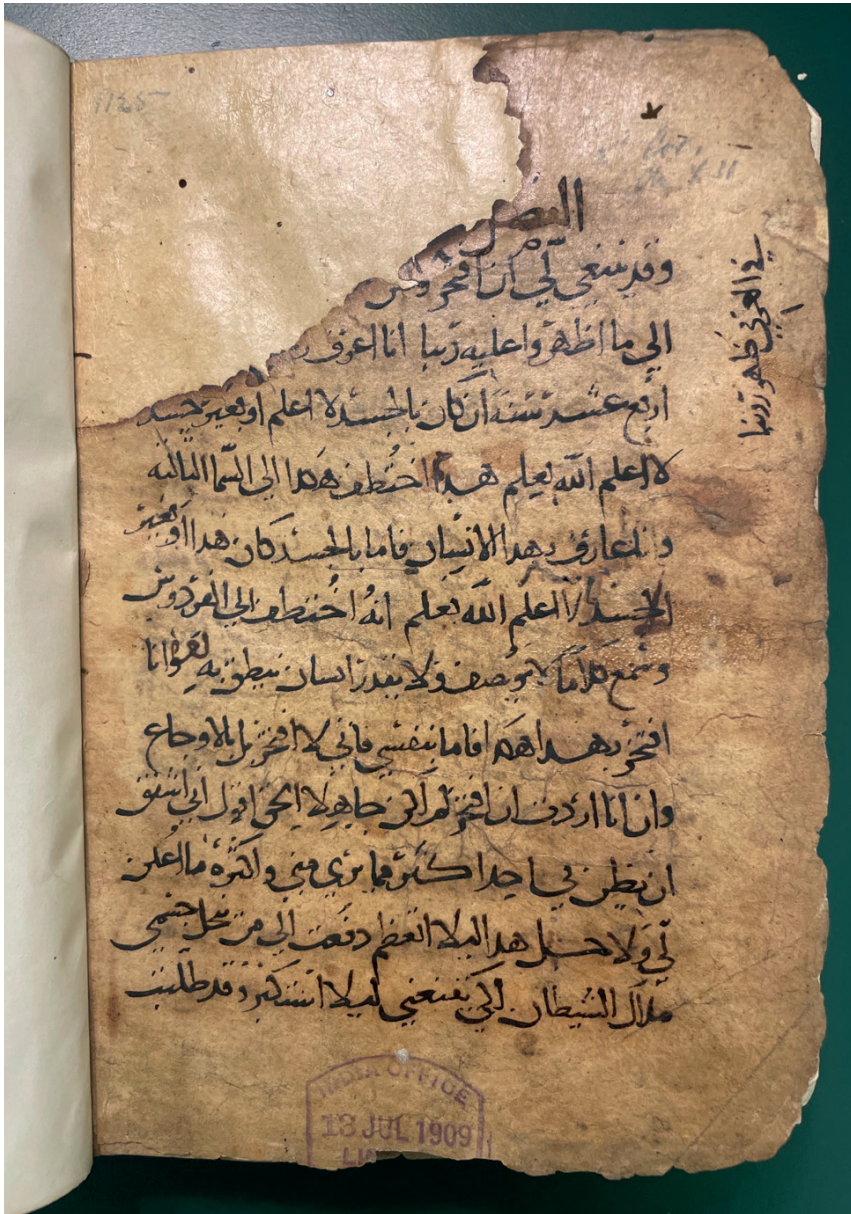 1125
النصر
وقد ينبغي لي ان افتخر ولكن
الي ما اظهر واعليه ربنا انا اعرف
اربع عشر سنة ان كان بالجسد لا اعلم او بغير جسد
لا اعلم الله يعلم هدا اختطف هكدا الي السما الثالثه
وانا عارف بهدا الانسان فاما بالجسد كان هدا او بغير
الجسد لا اعلم الله يعلم انه اختطف الي الفردوس
وسمع كلاما لا يوصف ولا يقدر انسان ينطق به لهو انا
افتخر بهدا هكدا فاما بنفسي فاني لا افتخر بل بالاوجاع
وان انا اردت ان افتخر لم اكن جاهلا الحق اقول اني اشفق
ان يظن بي احدا كثر مما يري مني واكثره ما اعلن
لي ولا حسل هدا البلا العظم دفعت الي من نحل جسمي
ملاك الشيطان الكي يقنعني ليلا استكبر وقد طلبت
في العربي ظهور ربنا
INDIA OFFICE
13 JUL 1909